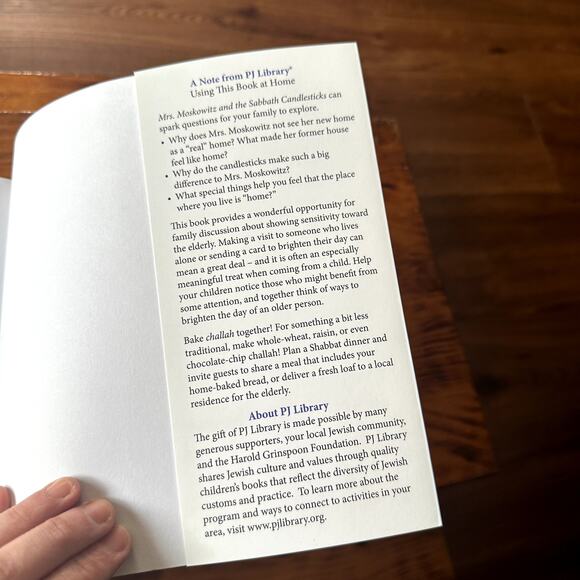 A Note from PJ Library®
Using This Book at Home
Mrs. Moskowitz and the Sabbath Candlesticks can
spark questions for your family to explore.
• Why does Mrs. Moskowitz not see her new home
as a "real" home? What made her former house
feel like home?
• Why do the candlesticks make such a big
difference to Mrs. Moskowitz?
• What special things help you feel that the place
where you live is "home?"
This book provides a wonderful opportunity for
family discussion about showing sensitivity toward
the elderly. Making a visit to someone who lives
alone or sending a card to brighten their day can
mean a great deal – and it is often an especially
meaningful treat when coming from a child. Help
your children notice those who might benefit from
some attention, and together think of ways to
brighten the day of an older person.
Bake challah together! For something a bit less
traditional, make whole-wheat, raisin, or even
chocolate-chip challah! Plan a Shabbat dinner and
invite guests to share a meal that includes your
home-baked bread, or deliver a fresh loaf to a local
residence for the elderly.
About PJ Library
The gift of PJ Library is made possible by many
generous supporters, your local Jewish community,
and the Harold Grinspoon Foundation. PJ Library
shares Jewish culture and values through quality
children's books that reflect the diversity of Jewish
customs and practice. To learn more about the
program and ways to connect to activities in your
area, visit www.pjlibrary.org.